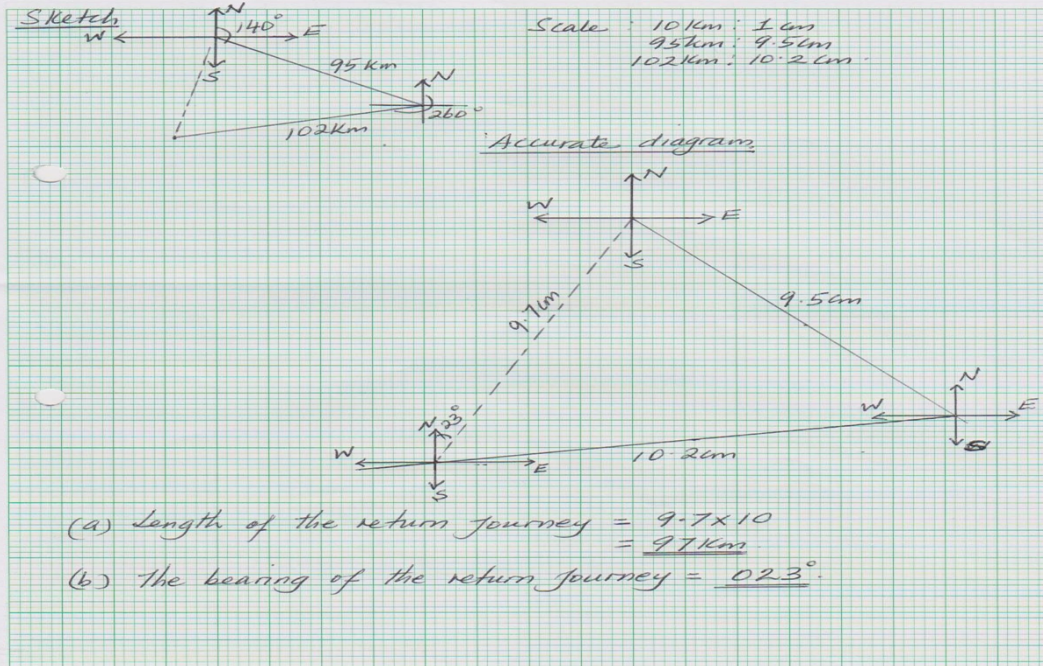 Sketch
N
140°
W
E
S
95 Km
N
260°
102 Km
Scale : 10 Km : 1 cm
95 km : 9.5 cm
102 Km : 10.2 cm
Accurate diagram.
N
W
E
S
9.7 cm
9.5 cm
N
W
E
S
N
23°
W
E
S
10.2 cm
(a) Length of the return journey = 9.7 x 10
= 97 Km
(b) The bearing of the return journey = 023°.